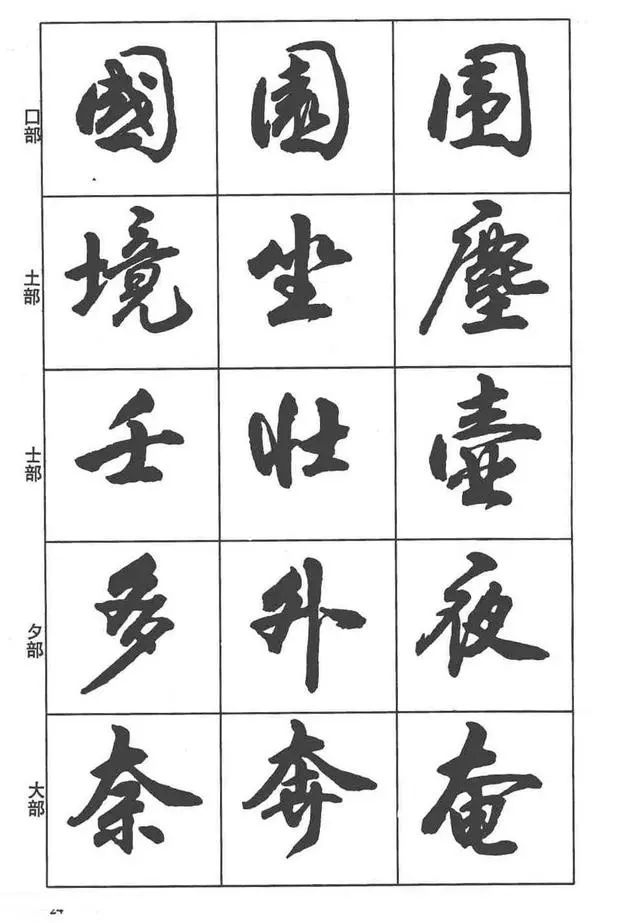 口部 國 園 围
土部 境 坐 塵
士部 壬 壮 壺
夕部 多 外 夜
大部 奈 奔 奄
24